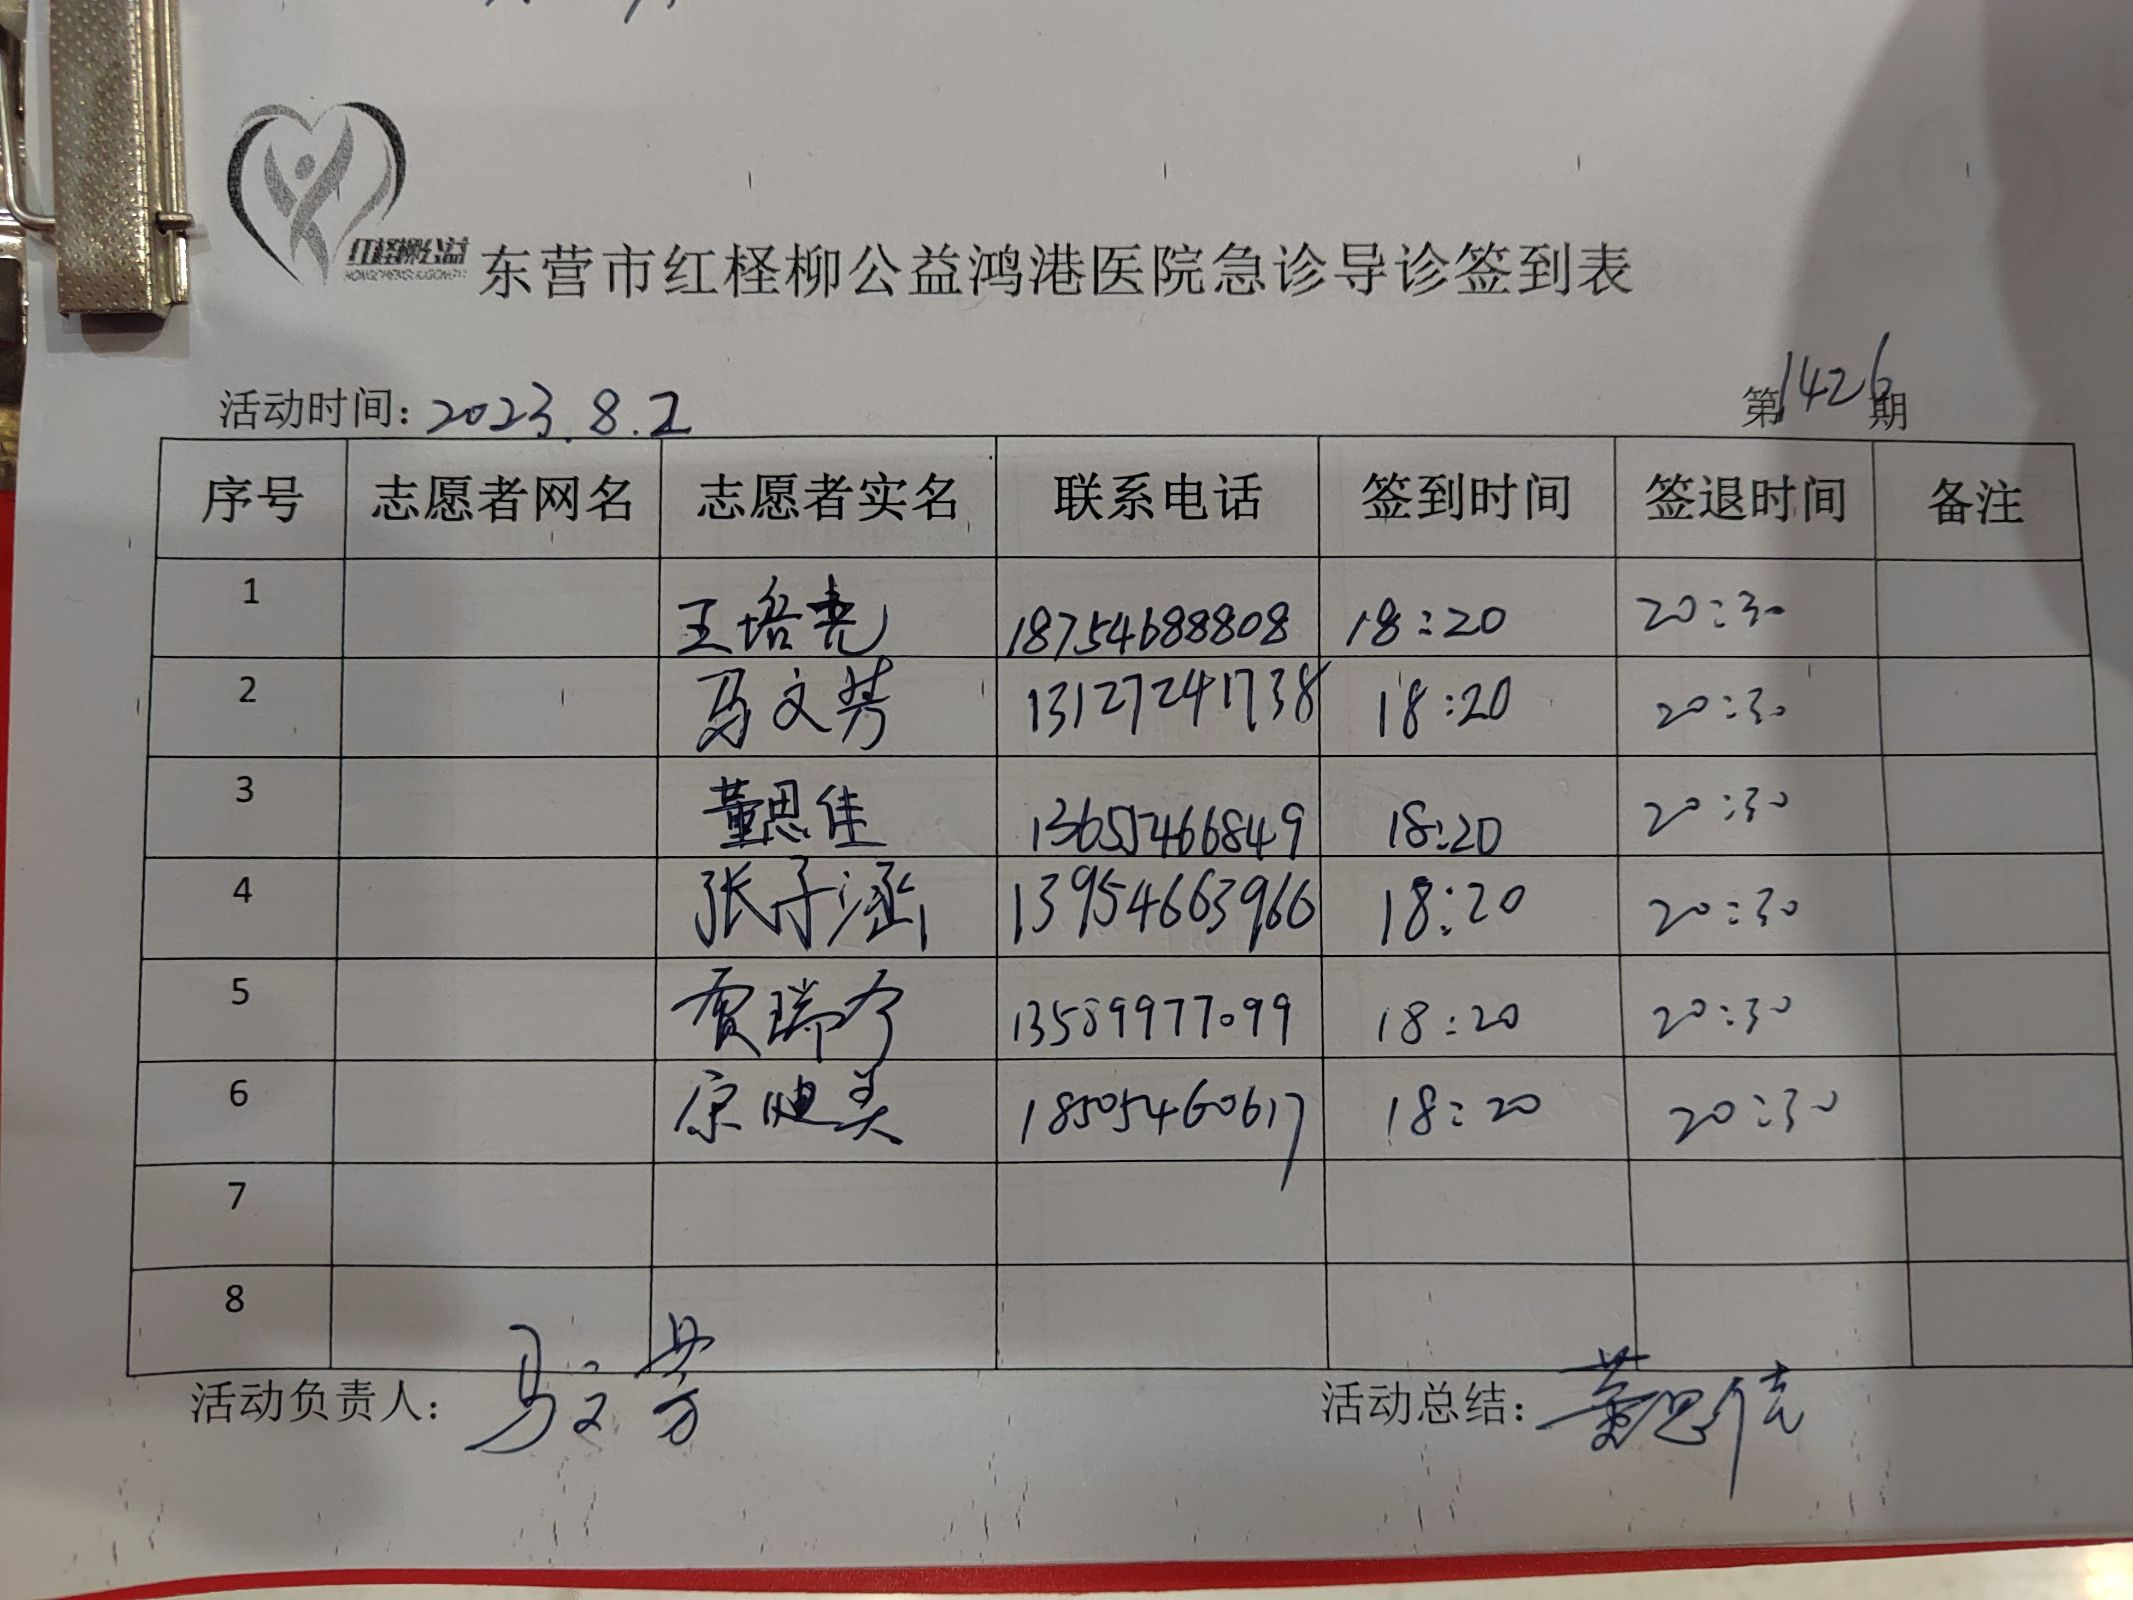 红柽柳公益
东营市红柽柳公益鸿港医院急诊导诊签到表
活动时间：2023.8.2 第1426期
序号 志愿者网名 志愿者实名 联系电话 签到时间 签退时间 备注
1 王培尧 18754688808 18:20 20:30
2 马文芳 13127241738 18:20 20:30
3 董思佳 13655466849 18:20 20:30
4 张子涵 13954663966 18:20 20:30
5 贾瑞 13589977099 18:20 20:30
6 美 18505460617 18:20 20:30
7
8
活动负责人：马文芳 活动总结：董思佳